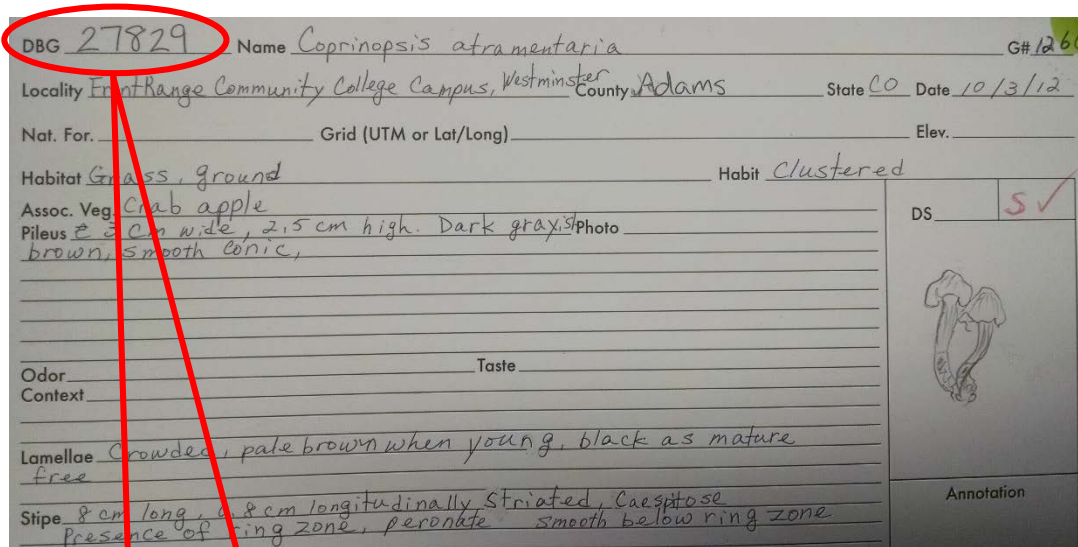 DBG 27829 Name Coprinopsis atramentaria G# 126
Locality FrontRange Community College Campus, Westminster County Adams State CO Date 10/3/12
Nat. For. Grid (UTM or Lat/Long) Elev.
Habitat Grass, ground Habit Clustered
Assoc. Veg. Crab apple DS S ✓
Pileus 3 cm wide, 2,5 cm high. Dark grayish Photo
brown, smooth conic,
Odor Taste
Context
Lamellae Crowded, pale brown when young, black as mature
free
Stipe 8 cm long, 0.8 cm longitudinally striated, Caespitose
Presence of ring zone, peronate smooth below ring zone
Annotation